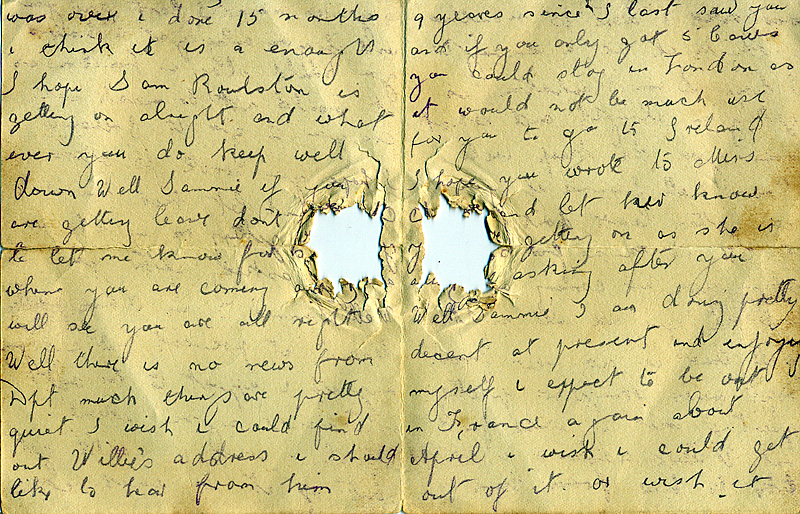 was over i done 15 months
i think it is a enough
I hope Sam Roulston is
getting on alright and what
ever you do keep well
down Well Sammie if you
are getting leave dont
to let me know for
when you are coming
will see you are all right
Well there is no news from
Dpt much things are pretty
quiet I wish i could find
out Willie's address i should
like to hear from him
9 years since I last saw you
and if you only got 5 days
you could stay in London as
it would not be much use
for you to go to Ireland
I hope you wrote to Miss
and let her know
getting on as she is
asking after you
Well Sammie I am doing pretty
decent at present and enjoying
myself i expect to be out
in France again about
April i wish i could get
out of it or wish it